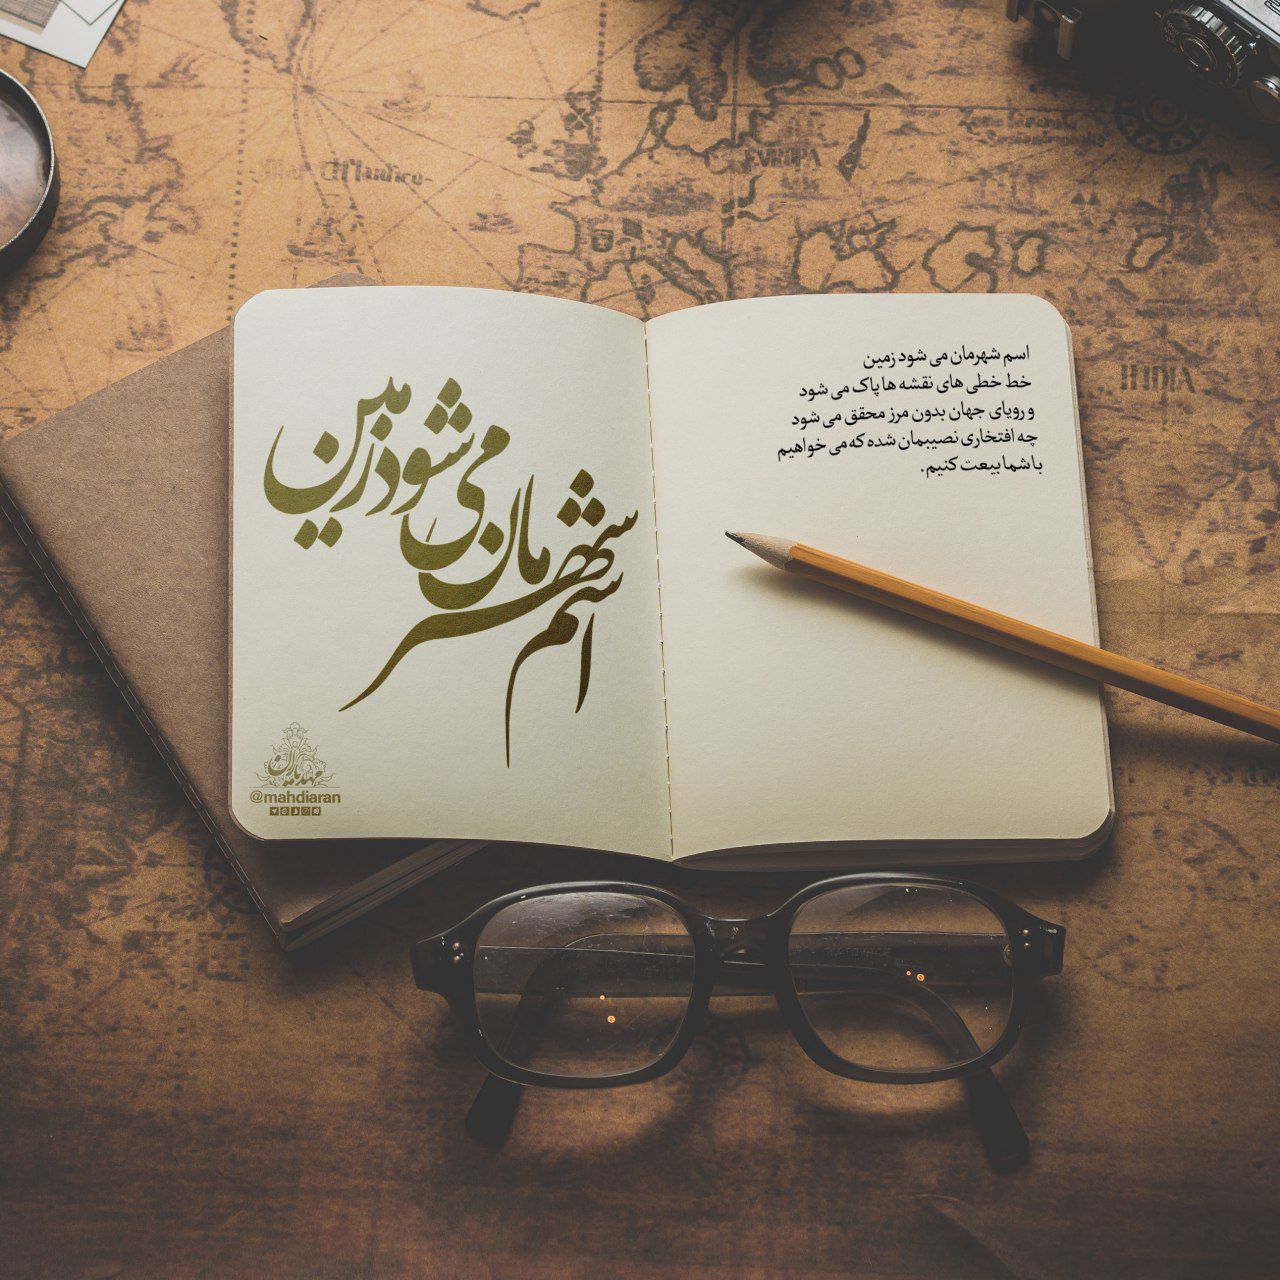 اسم شهرمان می شود زمین
خط خطی های نقشه ها پاک می شود
و رویای جهان بدون مرز محقق می شود
چه افتخاری نصیبمان شده که می خواهیم
با شما بیعت کنیم.
اسم شهرمان می شود زمین
مهدیاران
@mahdiaran
EVROPA
INDIA